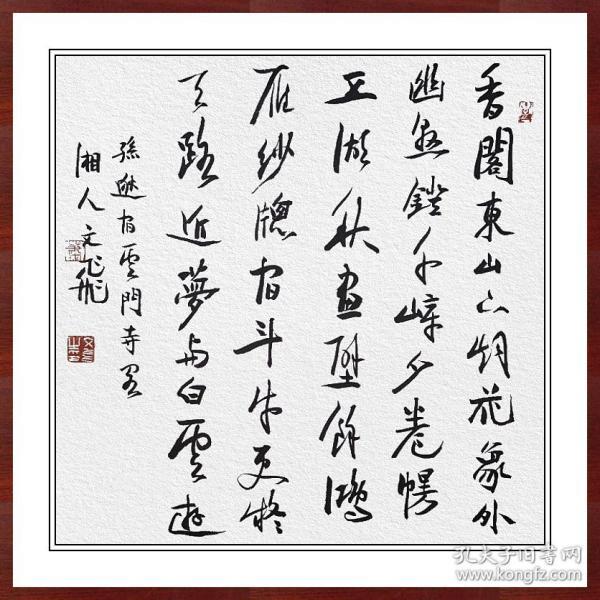 香閣東山下烟花象外
幽懸鐙千嶂夕卷幔
五湖秋畫壁餘鴻
雁紗牕宿斗牛更疑
天路近夢与白雲遊
孫逖宿雲門寺閣
湘人文飛
孔夫子旧书网
www.kongfz.com